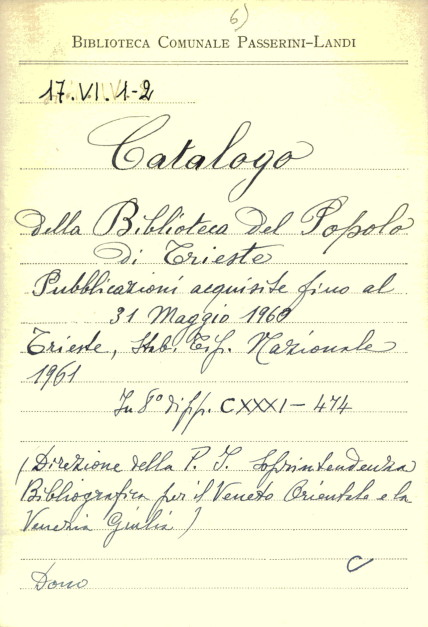 6)
BIBLIOTECA COMUNALE PASSERINI-LANDI
17.VI.1-2
Catalogo
della Biblioteca del Popolo
di Trieste
Pubblicazioni acquisite fino al
31 Maggio 1960
Trieste, Stab. Tip. Nazionale
1961
In 8° di pp. CXXXI – 474
(Direzione della P. I. Soprintendenza
Bibliografica per il Veneto Orientale e la
Venezia Giulia)
C
Dono